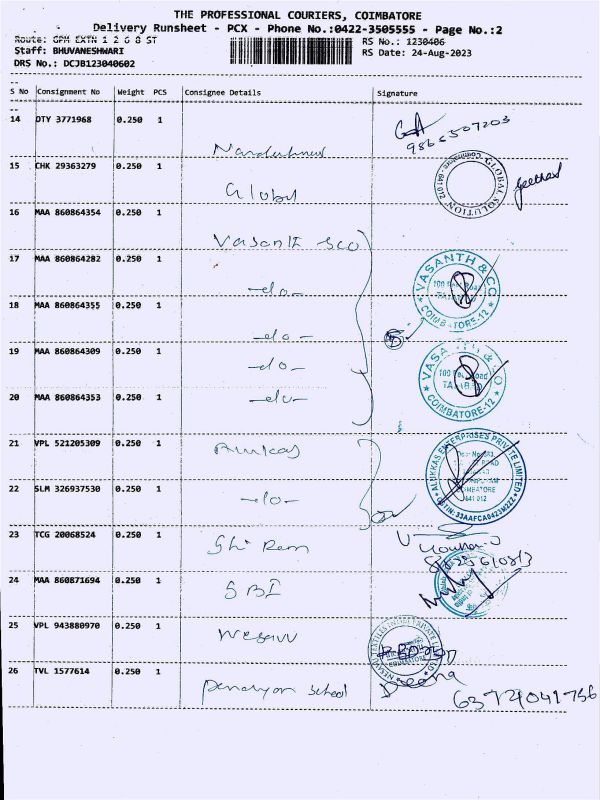 THE PROFESSIONAL COURIERS, COIMBATORE
Delivery Runsheet - PCX - Phone No.:0422-3505555 - Page No.:2
Route: GPM EXTN 1 2 6 8 ST
RS No.: 1230406
Staff: BHUVANESHWARI
RS Date: 24-Aug-2023
DRS No.: DCJB123040602
S No Consignment No Weight PCS Consignee Details Signature
14 DTY 3771968 0.250 1
15 CHK 29363279 0.250 1
Global
GLOBAL SOLUTION
Coimbatore - 641 012
16 MAA 860864354 0.250 1
Vasanth &co
17 MAA 860864282 0.250 1
-do-
VASANTH & CO
COIMBATORE-12
18 MAA 860864355 0.250 1
-do-
5
19 MAA 860864309 0.250 1
-do-
VASANTH & CO
COIMBATORE-12
20 MAA 860864353 0.250 1
-do-
21 VPL 521205309 0.250 1
Alukkas
ALUKKAS ENTERPRISES PRIVATE LIMITED
COIMBATORE
641 012
22 SLM 326937530 0.250 1
-do-
23 TCG 20068524 0.250 1
Shri Ram
24 MAA 860871694 0.250 1
SBI
25 VPL 943880970 0.250 1
26 TVL 1577614 0.250 1
School